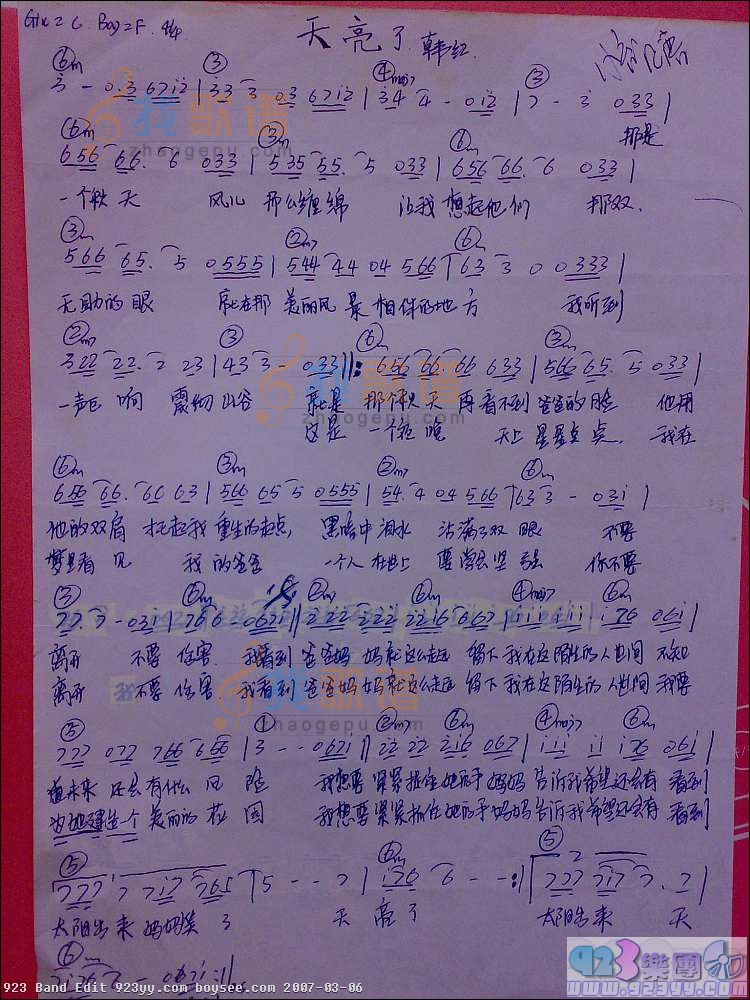 Girl=C Boy=F 4/4
天亮了 韩红
6m 3 4maj7 3
3 - 0 3 6 7 1 2 | 3 3 3 0 3 6 7 1 2 | 3 4 4 - 0 1 2 | 7 - 3 0 3 3 |
那是
6m 3m 6m
6 5 6 6 6. 6 0 3 3 | 5 3 5 5 5. 5 0 3 3 | 6 5 6 6 6. 6 0 3 3 |
一个秋天 风儿 那么缠绵 让我 想起他们 那双
3m 2m7 6m
5 6 6 6 5. 5 0 5 5 5 | 5 4 4 4 4 0 4 5 6 6 | 6 3 3 0 0 3 3 3 |
无助的眼 就在那 美丽风景 相伴的地方 我听到
2m7 3 6m 3m
3 2 2 2 2. 2 2 3 | 4 3 3 - 0 3 3 ||: 6 5 6 6 6 6 6 6 3 3 | 5 6 6 6 5. 5 0 3 3 |
一声巨响 震彻山谷 就是 那个秋天 再看不到 爸爸的脸 他用
这是 一个夜晚 天上 星星点点 我在
6m 3m 2m7 6m
6 5 6 6 6. 6 6 6 3 | 5 6 6 6 5 5 0 5 5 5 | 5 4. 4 0 4 5 6 6 | 6 3 3 - 0 3 1 |
他的双肩 托起我 重生的起点, 黑暗中 泪水 沾满了双眼 不要
梦里看见 我的爸爸 一个人在世上 要学会坚强 你不要
3 6m 2m7 6m 4maj7 6m
7 7 7 - 0 3 1 | 7 6 6 - 0 6 7 1 || 2 2 2 2 2 2 2 2 1 6 0 6 7 | 1 1 1 1 1 1 1 7 6 0 6 1 |
离开 不要 伤害 我看到 爸爸妈妈就这么走远 留下我在这陌生的人世间 不知
离开 不要 伤害 我看到 爸爸妈妈就这么走远 留下我在这陌生的人世间 我要
5 1 2m7 6m 4maj7 6m
7 7 7 0 7 7 7 6 6 6 6 6 | 3 - - 0 6 7 1 || 2 2 2 2 2 1 6 0 6 7 | 1 1 1 1 1 1 7 6 0 6 1 |
道未来 还会有什么风险 我想要紧紧抓住她的手 妈妈告诉我希望还会有 看到
为她建造个美丽的花园 我想要紧紧抓住她的手 妈妈告诉我希望还会有 看到
5 6m 5
7 7 7 7 7 1 7 7 6 5 | 5 - - 7 | 1 7 6 6 - - :|| 2 7 7 7 7 1 7 7. 7 |
太阳出来 妈妈笑了 天亮了 太阳出来 天
6m
我歌谱
zhaogepu.com
我歌谱
zhaogepu.com
我歌谱
zhaogepu.com
923 Band Edit 923yy.com boysee.com 2007-03-06
923樂團
www.923yy.com